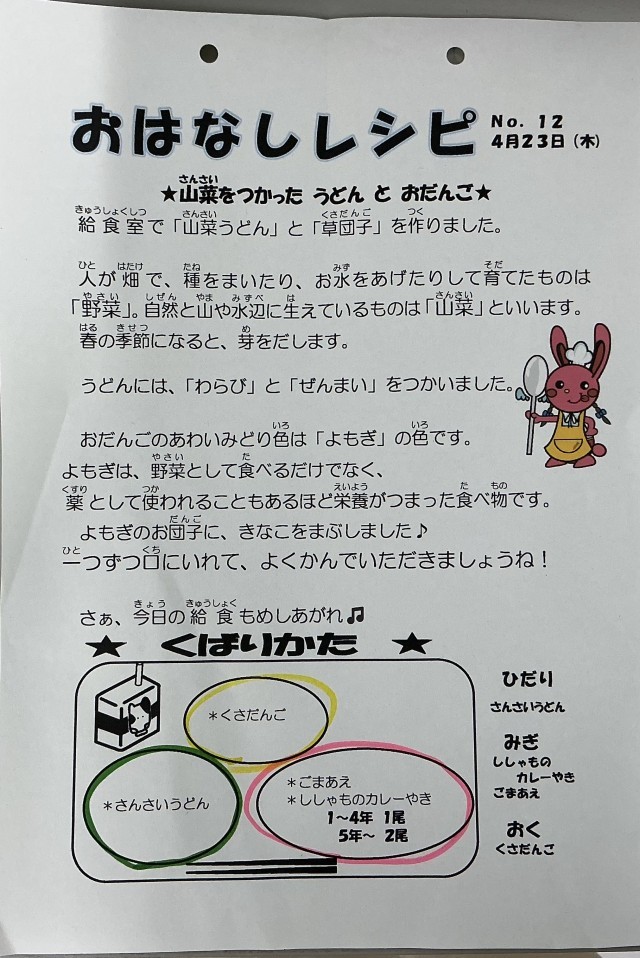 おはなしレシピ
No. 12
4月23日(木)
★山菜をつかった うどん と おだんご★
給食室で「山菜うどん」と「草団子」を作りました。
人が畑で、種をまいたり、お水をあげたりして育てたものは
「野菜」。自然と山や水辺に生えているものは「山菜」といいます。
春の季節になると、芽をだします。
うどんには、「わらび」と「ぜんまい」をつかいました。
おだんごのあわいみどり色は「よもぎ」の色です。
よもぎは、野菜として食べるだけでなく、
薬として使われることもあるほど栄養がつまった食べ物です。
よもぎのお団子に、きなこをまぶしました♪
一つずつ口にいれて、よくかんでいただきましょうね！
さぁ、今日の給食もめしあがれ♫
★ くばりかた ★
＊くさだんご
＊さんさいうどん
＊ごまあえ
＊ししゃものカレーやき
1～4年 1尾
5年～ 2尾
ひだり
さんさいうどん
みぎ
ししゃもの
カレーやき
ごまあえ
おく
くさだんご